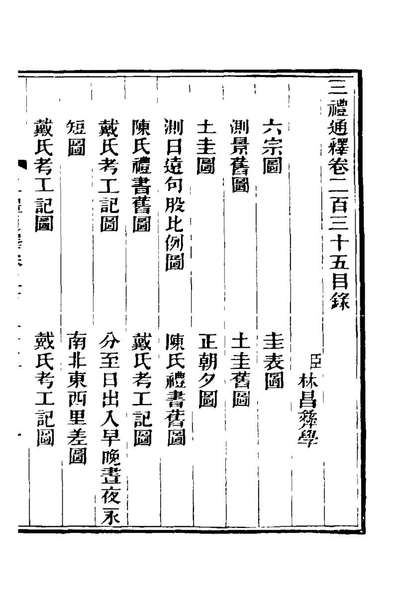 三禮通釋卷二百三十五目錄
臣林昌彝學
六宗圖　圭表圖
測景舊圖　土圭舊圖
土圭圖　正朝夕圖
測日遠句股比例圖　陳氏禮書舊圖
陳氏禮書舊圖　戴氏考工記圖
戴氏考工記圖　分至日出入早晚晝夜永
短圖　南北東西里差圖
戴氏考工記圖　戴氏考工記圖